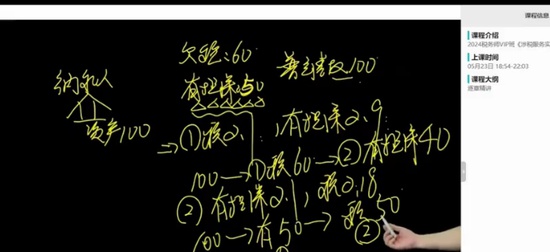 欠税:60
普通债权100
纳税人
有担保:50
资产100
→①税2.1,有担保2.9
100→①税60→②有担保40
②有担保2.1,税2.18
100→有50→税50
②
课程信息
课程介绍
2024税务师VIP班《涉税服务实
上课时间
05月23日 18:54-22:03
课程大纲
逐章精讲